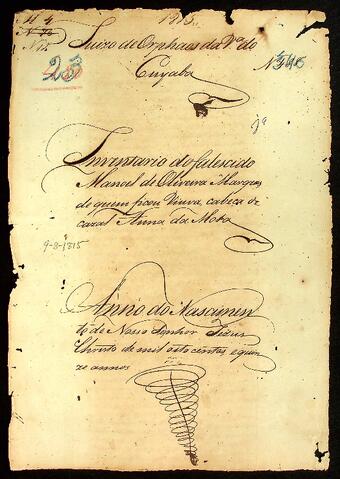 1815
N 15
23
Juizo de Orphaos da Vª do
Cuyaba
Nº
Inventario do falescido
Manoel de Oliveira Marques
de quem ficou Viuva, cabeça de
cazal Anna da Mota
9-8-1815
Anno do Nascimen
to de Nosso Senhor Jezus
Christo de mil oito centos e quin
ze annos